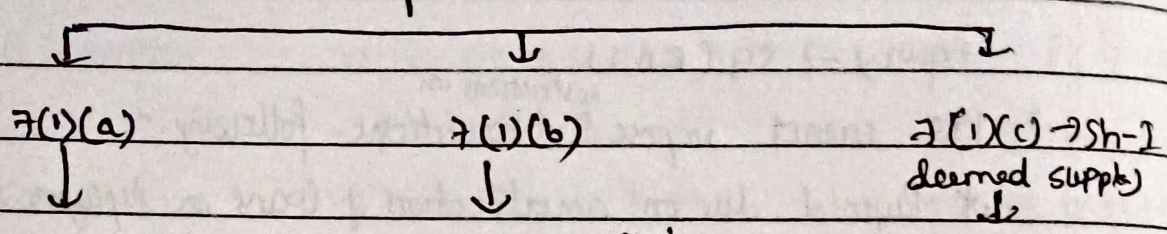 7(1)(a) 7(1)(b) 7(1)(c) → Sh-I
deemed supply)